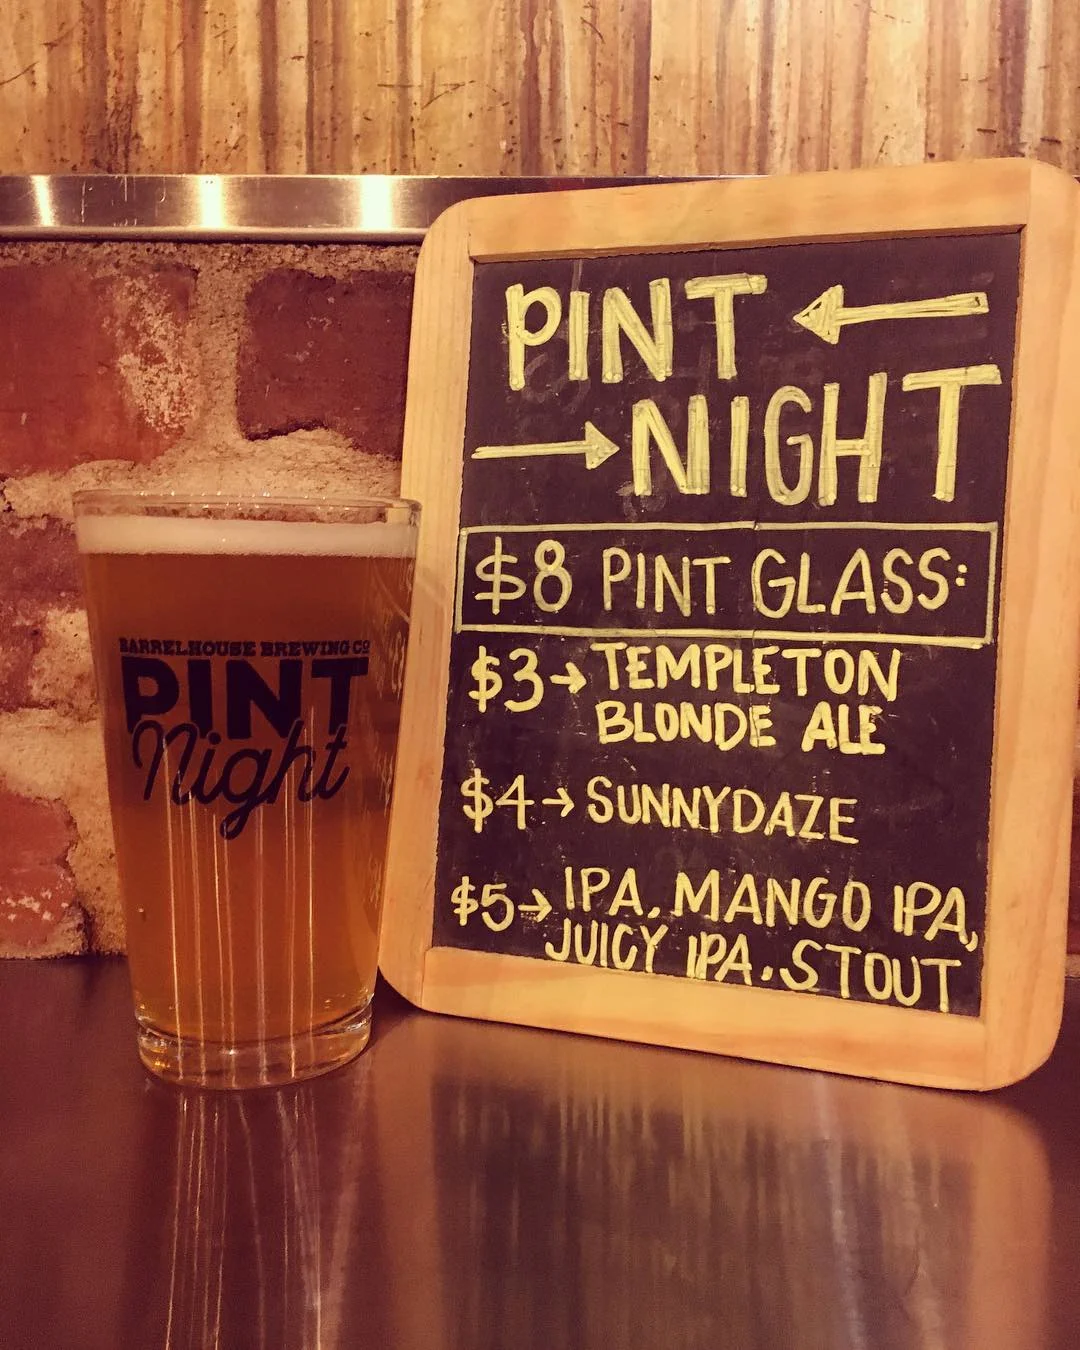 PINT
NIGHT
$8 PINT GLASS:
$3→TEMPLETON
BLONDE ALE
$4→SUNNYDAZE
$5→IPA, MANGO IPA,
JUICY IPA, STOUT
BARRELHOUSE BREWING CO
PINT
Night